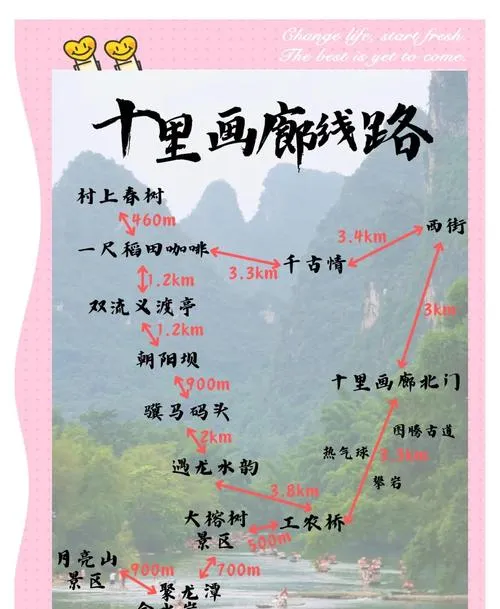 Change life, start fresh.
The best is yet to come.
十里画廊线路
村上春树
460m
西街
一尺稻田咖啡
3.4km
千古情
3.3km
1.2km
双流义渡亭
3km
1.2km
朝阳坝
900m
十里画廊北门
骥马码头
图腾古道
2km
热气球
3.3km
遇龙水韵
攀岩
3.8km
大榕树
景区
工农桥
500m
月亮山
景区
900m
700m
聚龙潭